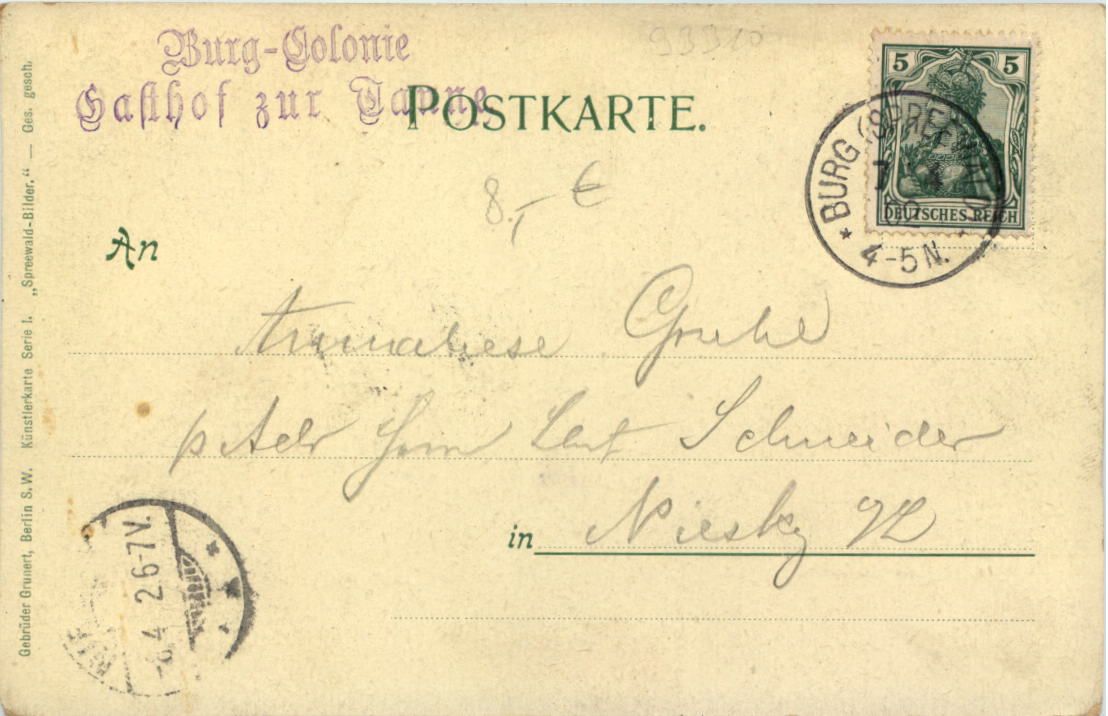 Burg-Colonie
Gasthof zur Tanne
99310
POSTKARTE.
5 5
DEUTSCHES REICH
* BURG (SPREEWALD) *
7 4
02
4-5 N.
8,- €
An
Annaliese
p Adr Herrn Schneider
in Niesky
4 2 6-7 V.
Gebrüder Grunert, Berlin S.W. Künstlerkarte Serie I. „Spreewald-Bilder." — Ges. gesch.